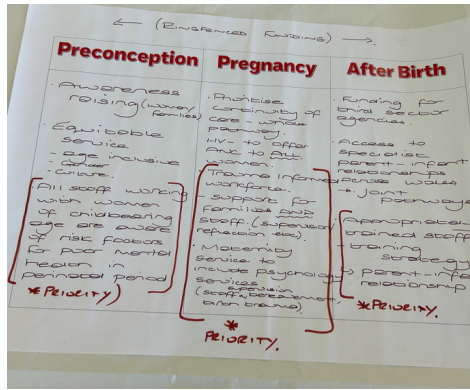 ← (RINGFENCED FUNDING) →
Preconception
· Awareness
raising (women/
families)
· Equitable
service
- age inclusive
- Gender
- Culture.
· All staff working
with women
of childbearing
age are aware
of risk factors
for poor mental
health
perinatal period
* PRIORITY)
Pregnancy
· Prioritise
continuity of
care - whole
pathway.
HV - to offer
ANC to ALL
women
· Trauma informed
workforce.
- support for
families AND
staff (supervision/
reflection etc).
· Maternity
service to
include psychology
services
supervision
(staff, bereavement,
birth trauma).
*
PRIORITY.
After Birth
· Funding for
third sector
agencies.
· Access to
specialist
parent-infant
relationships
across Wales
→ joint
pathways
· Appropriately
trained staff
- training
strategy
parent-infant
relationship
* PRIORITY.